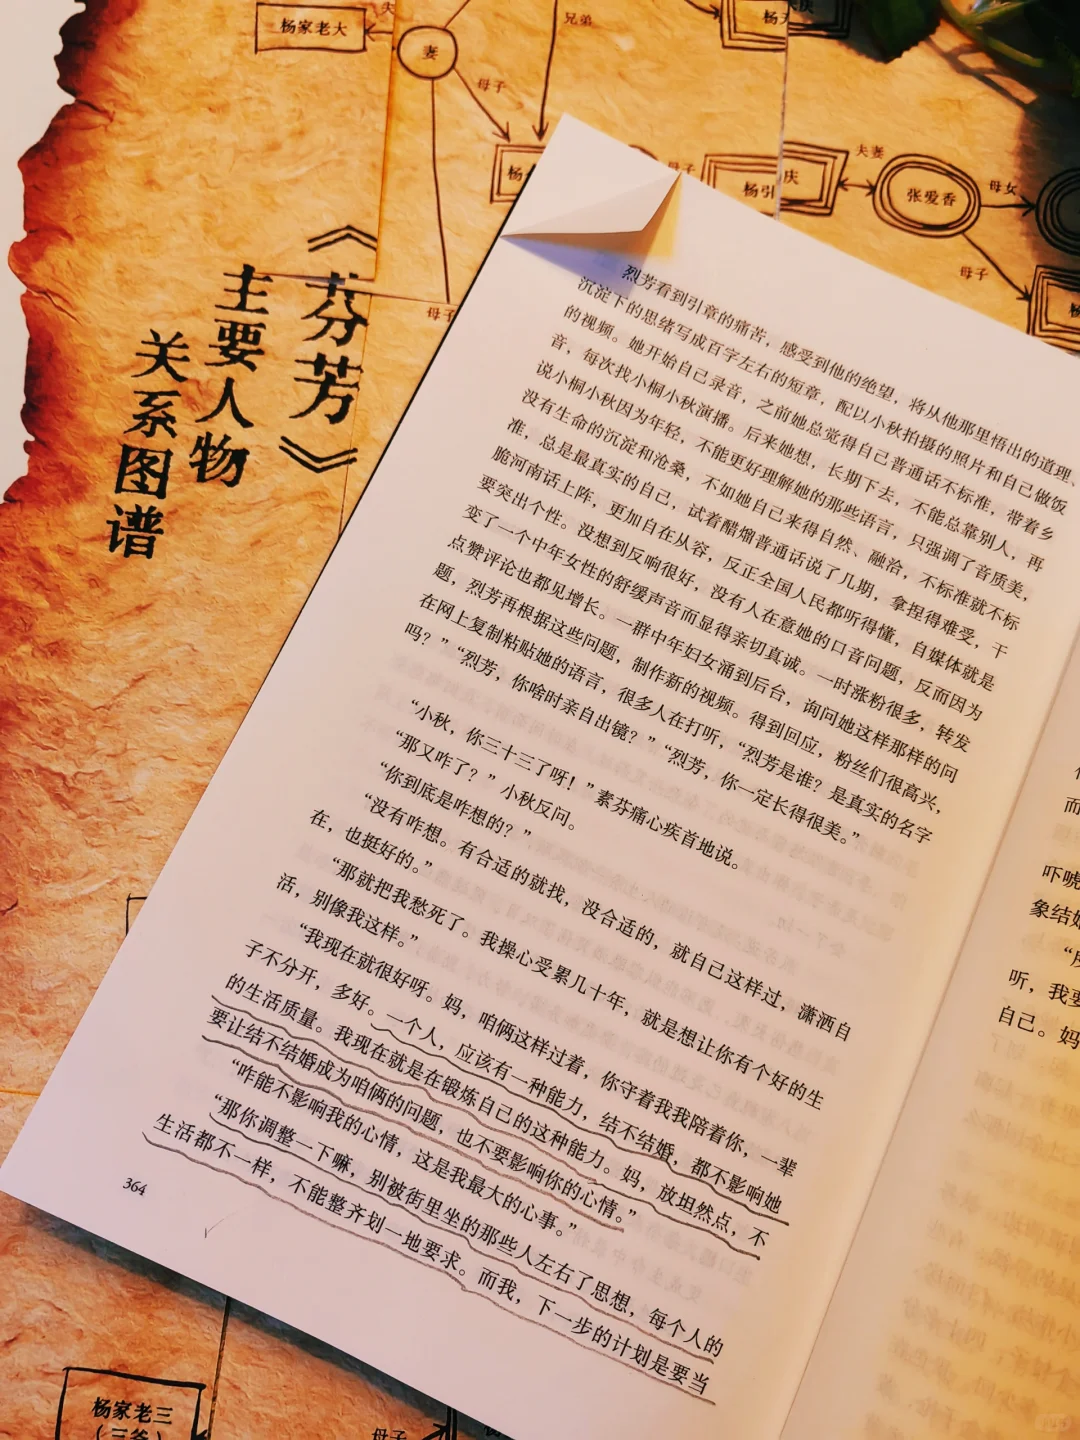 杨家老大
夫
妻
兄弟
母子
母子
夫妻
张爱香
母女
母子
母子
杨引
庆
《芬芳》
主要人物
关系图谱
烈芳看到引章的痛苦，感受到他的绝望，将从他那里悟出的道理、
沉淀下的思绪写成百字左右的短章，配以小秋拍摄的照片和自己做饭
的视频。她开始自己录音，之前她总觉得自己普通话不标准，带着乡
音，每次找小桐小秋演播。后来她想，长期下去，不能总靠别人，再
说小桐小秋因为年轻，不能更好理解她的那些语言，只强调了音质美，
没有生命的沉淀和沧桑，不如她自己来得自然、融洽，不标准就不标
准，总是最真实的自己，试着醋熘普通话说了几期，拿捏得难受，干
脆河南话上阵，更加自在从容，反正全国人民都听得懂，自媒体就是
要突出个性。没想到反响很好，没有人在意她的口音问题，反而因为
变了一个中年女性的舒缓声音而显得亲切真诚。一时涨粉很多，转发
点赞评论也都见增长。一群中年妇女涌到后台，询问她这样那样的问
题，烈芳再根据这些问题，制作新的视频。得到回应，粉丝们很高兴，
在网上复制粘贴她的语言，很多人在打听，“烈芳是谁？是真实的名字
吗？”“烈芳，你啥时亲自出镜？”“烈芳，你一定长得很美。”
“小秋，你三十三了呀！”素芬痛心疾首地说。
“那又咋了？”小秋反问。
“你到底是咋想的？”
“没有咋想。有合适的就找，没合适的，就自己这样过，潇洒自
在，也挺好的。”
“那就把我愁死了。我操心受累几十年，就是想让你有个好的生
活，别像我这样。”
“我现在就很好呀。妈，咱俩这样过着，你守着我我陪着你，一辈
子不分开，多好。一个人，应该有一种能力，结不结婚，都不影响她
的生活质量。我现在就是在锻炼自己的这种能力。妈，放坦然点，不
要让结不结婚成为咱俩的问题，也不要影响你的心情。”
“咋能不影响我的心情，这是我最大的心事。”
“那你调整一下嘛，别被街里坐的那些人左右了思想，每个人的
生活都不一样，不能整齐划一地要求。而我，下一步的计划是要当
364
而
吓唬
象结婚
听，我要
自己。妈
杨家老三
母子